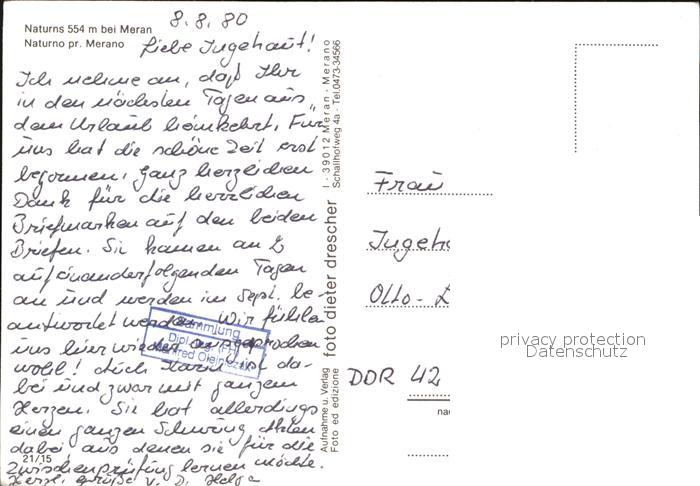 Naturns 554 m bei Meran
Naturno pr. Merano
8.8.80
Liebe Ingehaut!
Ich nehme an, daß Ihr
in den nächsten Tagen aus
dem Urlaub heimkehrt. Für
uns hat die schöne Zeit erst
begonnen. Ganz herzlichen
Dank für die herrlichen
Briefmarken auf den beiden
Briefen. Sie kamen an 2
aufeinanderfolgenden Tagen
an und werden im Sept. be-
antwortet werden. Wir fühlen
uns hier wieder ausgesprochen
wohl! Auch Karin ist da-
bei und zwar mit ganzem
Herzen. Sie hat allerdings
einen ganzen Schwung Akten
dabei aus denen sie für die
Zwischenprüfung lernen möchte.
Herzl. Grüße v. D. Helga
21/15
Sammlung
Dipl.-Ing.
Manfred
Aufnahme u. Verlag
Foto ed edizione
foto dieter drescher
I - 39012 Meran - Merano
Schallhofweg 4a - Tel.0473-34566
Frau
Ingeh
Otto-
DDR 42
na
privacy protection
Datenschutz